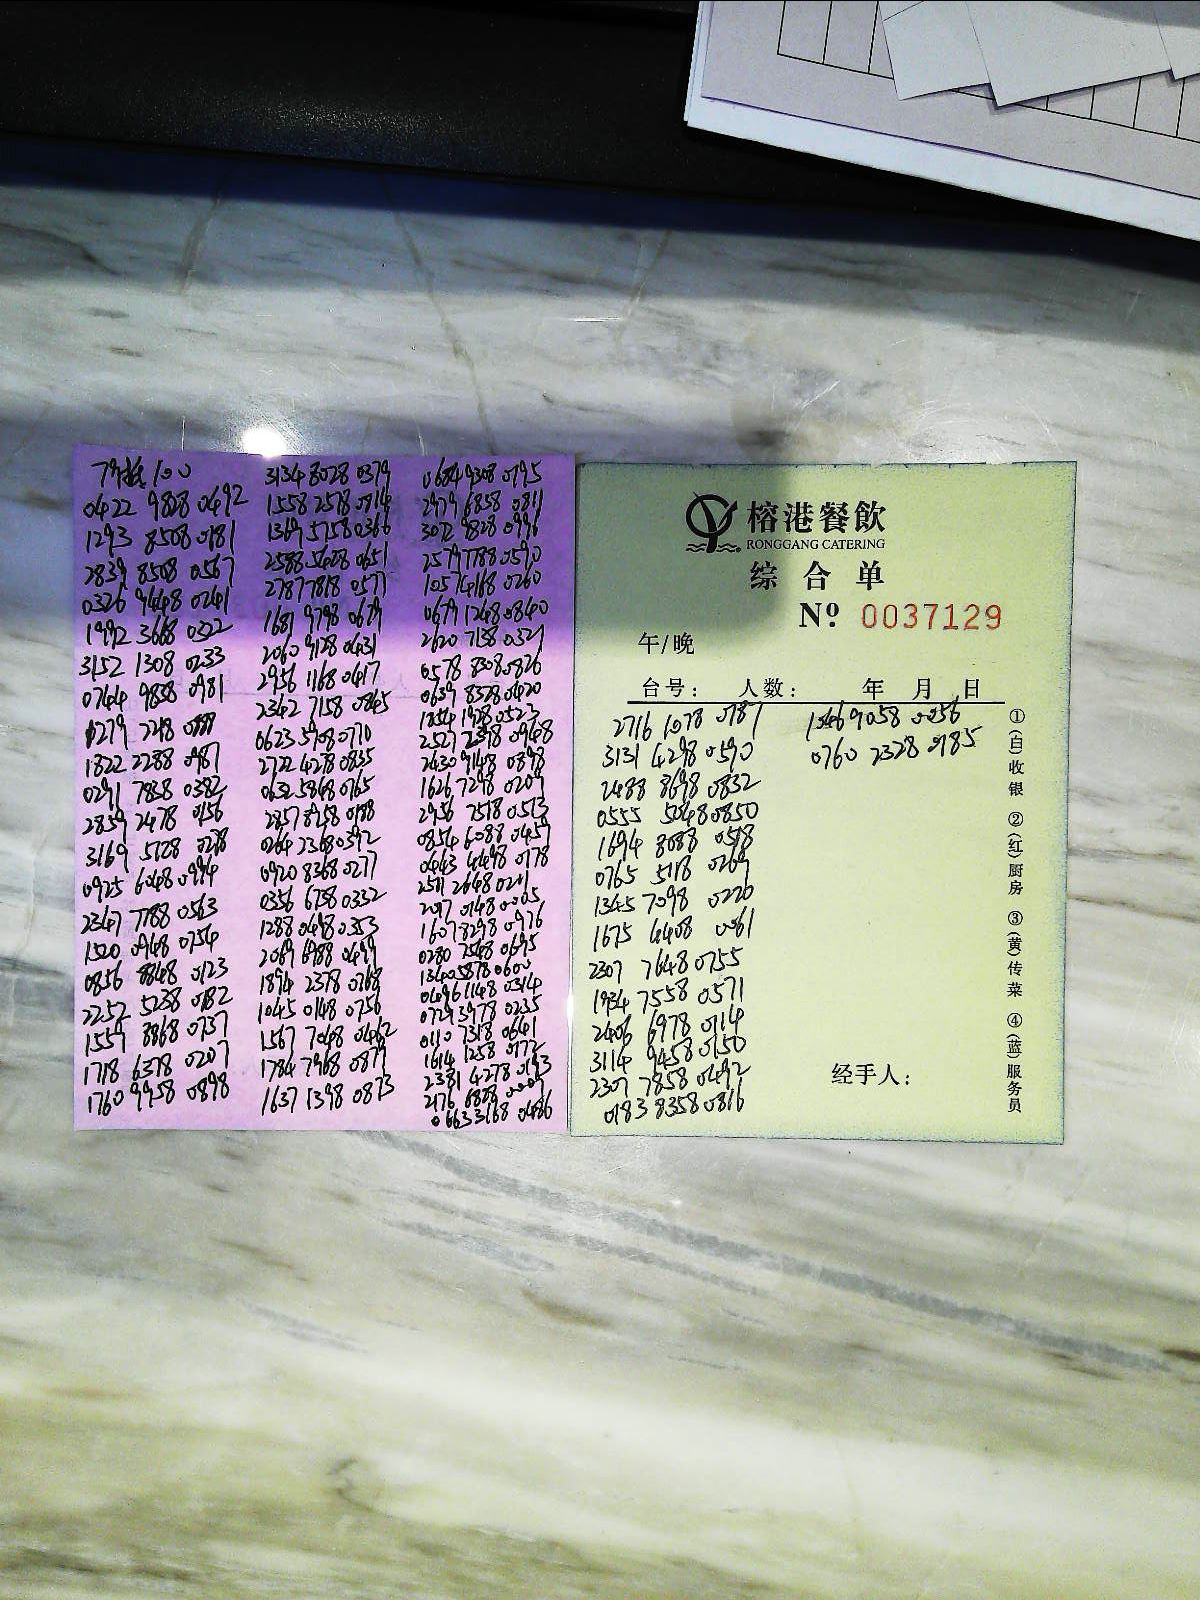 0422 9828 0492
1293 8508 0181
2839 8508 0567
0326 9448 0241
1992 3668 0322
3152 1308 0233
0764 9838 0981
0279 2218
1822 2288 0987
0291 7838 0382
2859 2478 0156
3169 5128
0925 6048 0994
2347 7788 0563
1520 0948 0754
0856 8848 0123
2252 5238 0182
1559 8868 0737
1718 6378 0207
1760 9958 0898
3134 8028 0379
1558 2578 0814
1369 5758 0366
2588 5628 0651
2787 7818 0577
1681 9798 0679
2060 9128 0431
2956 1168 0417
2342 7158 0845
0623 5908 0770
2722 4278 0835
0632 5868 0765
2857 8258 0188
0264 2368 0392
0920 8368 0277
0356 6758 0332
1288 0498 0353
2069 6988 0499
1894 2378 0768
1045 0148 0756
1567 7048 0462
1784 7968 0879
1637 1398 0873
0684 9308 0795
2979 6858 0811
3072 9828 0996
2579 7788 0590
1057 4168 0260
0679 1248 0840
2620 7138 0321
0578 8308 0826
0639 8528 0420
1854 1928 0523
2527 2398 0948
2430 9148 0898
1626 7298 0209
2956 7518 0513
0854 6088 0457
0443 4498 0178
2511 2648 0211
2017 0148 0005
1607 8298 0976
0280 7548 0695
1340 5878 0600
0496 1148 0314
0729 3978 0235
0110 7318 0641
1614 1258 0172
2381 4278 0193
2176 6808 0009
0663 3168 0486
榕港餐飲
RONGGANG CATERING
综合单
Nº 0037129
午/晚
台号: 人数: 年 月 日
2716 1078 0187
3131 4298 0590
2488 8698 0832
0555 5048 0850
1694 8088 0518
0765 5118 0269
1345 7098 0220
1675 4408 0061
2307 7648 0755
1934 7558 0571
2406 6978 0114
3114 9458 0150
2307 7858 0492
0183 8358 0816
9058 0056
0760 2328 0185
经手人:
①(白)收银 ②(红)厨房 ③(黄)传菜 ④(蓝)服务员